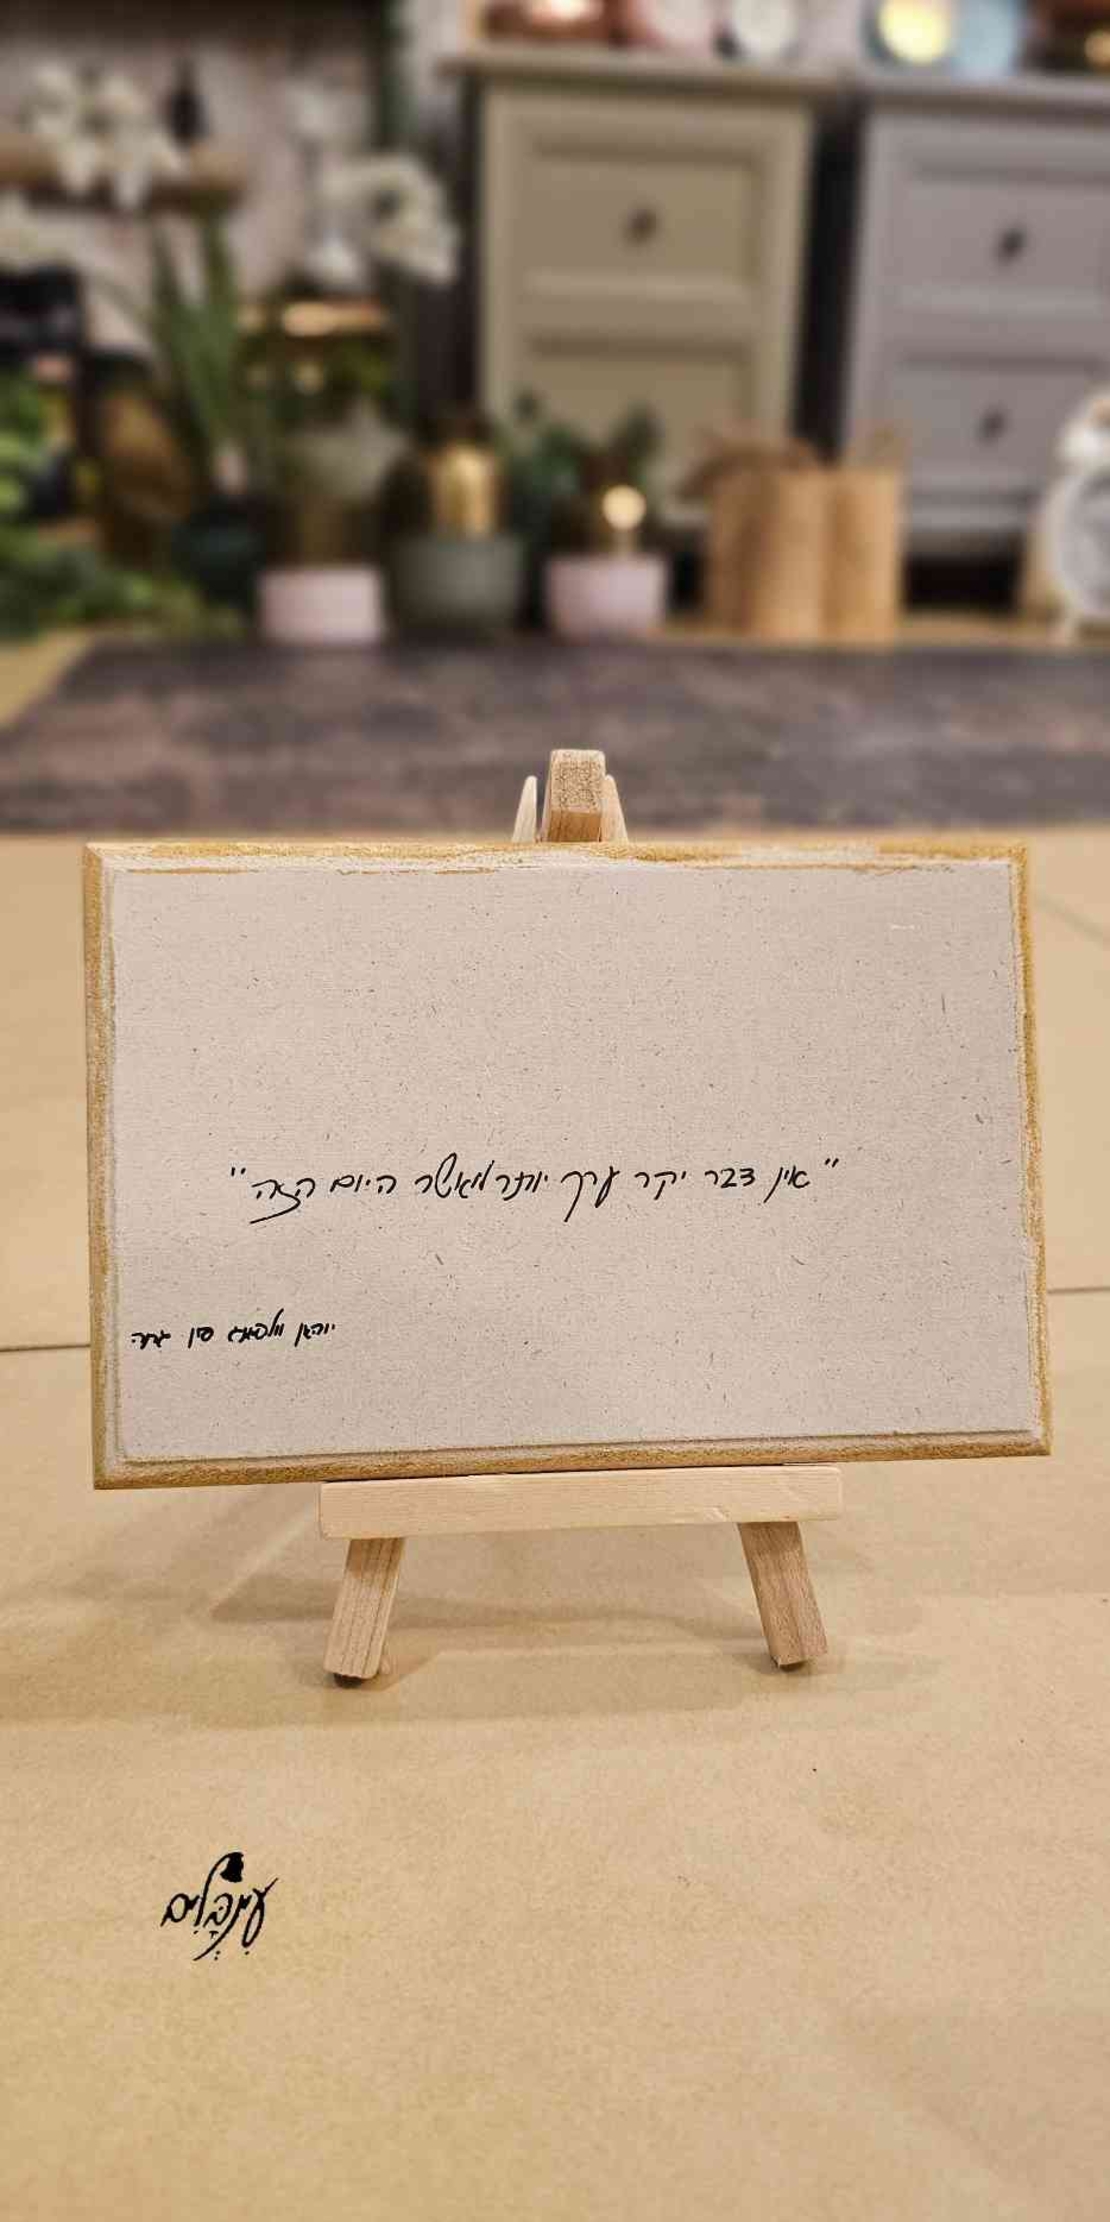 "אין דבר יקר ערך יותר מאשר היום הזה"
יוהאן וולפגנג פון גתה